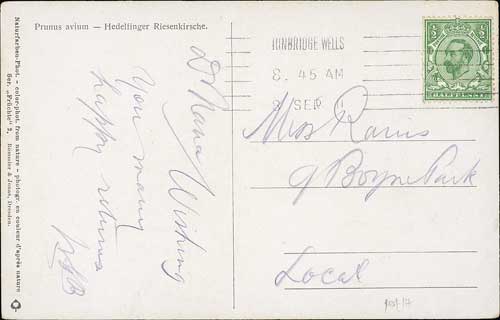 Prunus avium — Hedelfinger Riesenkirsche.
Naturfarben-Phot. - color-phot. from nature - photogr. en couleur d'après nature
Ser. „Früchte" 2. Römmler & Jonas, Dresden.
D Nana Wishing
You many
happy returns
TUNBRIDGE WELLS
8. 45 AM
SEP 11
HALFPENNY
Mrs
9 Boyne Park
Local